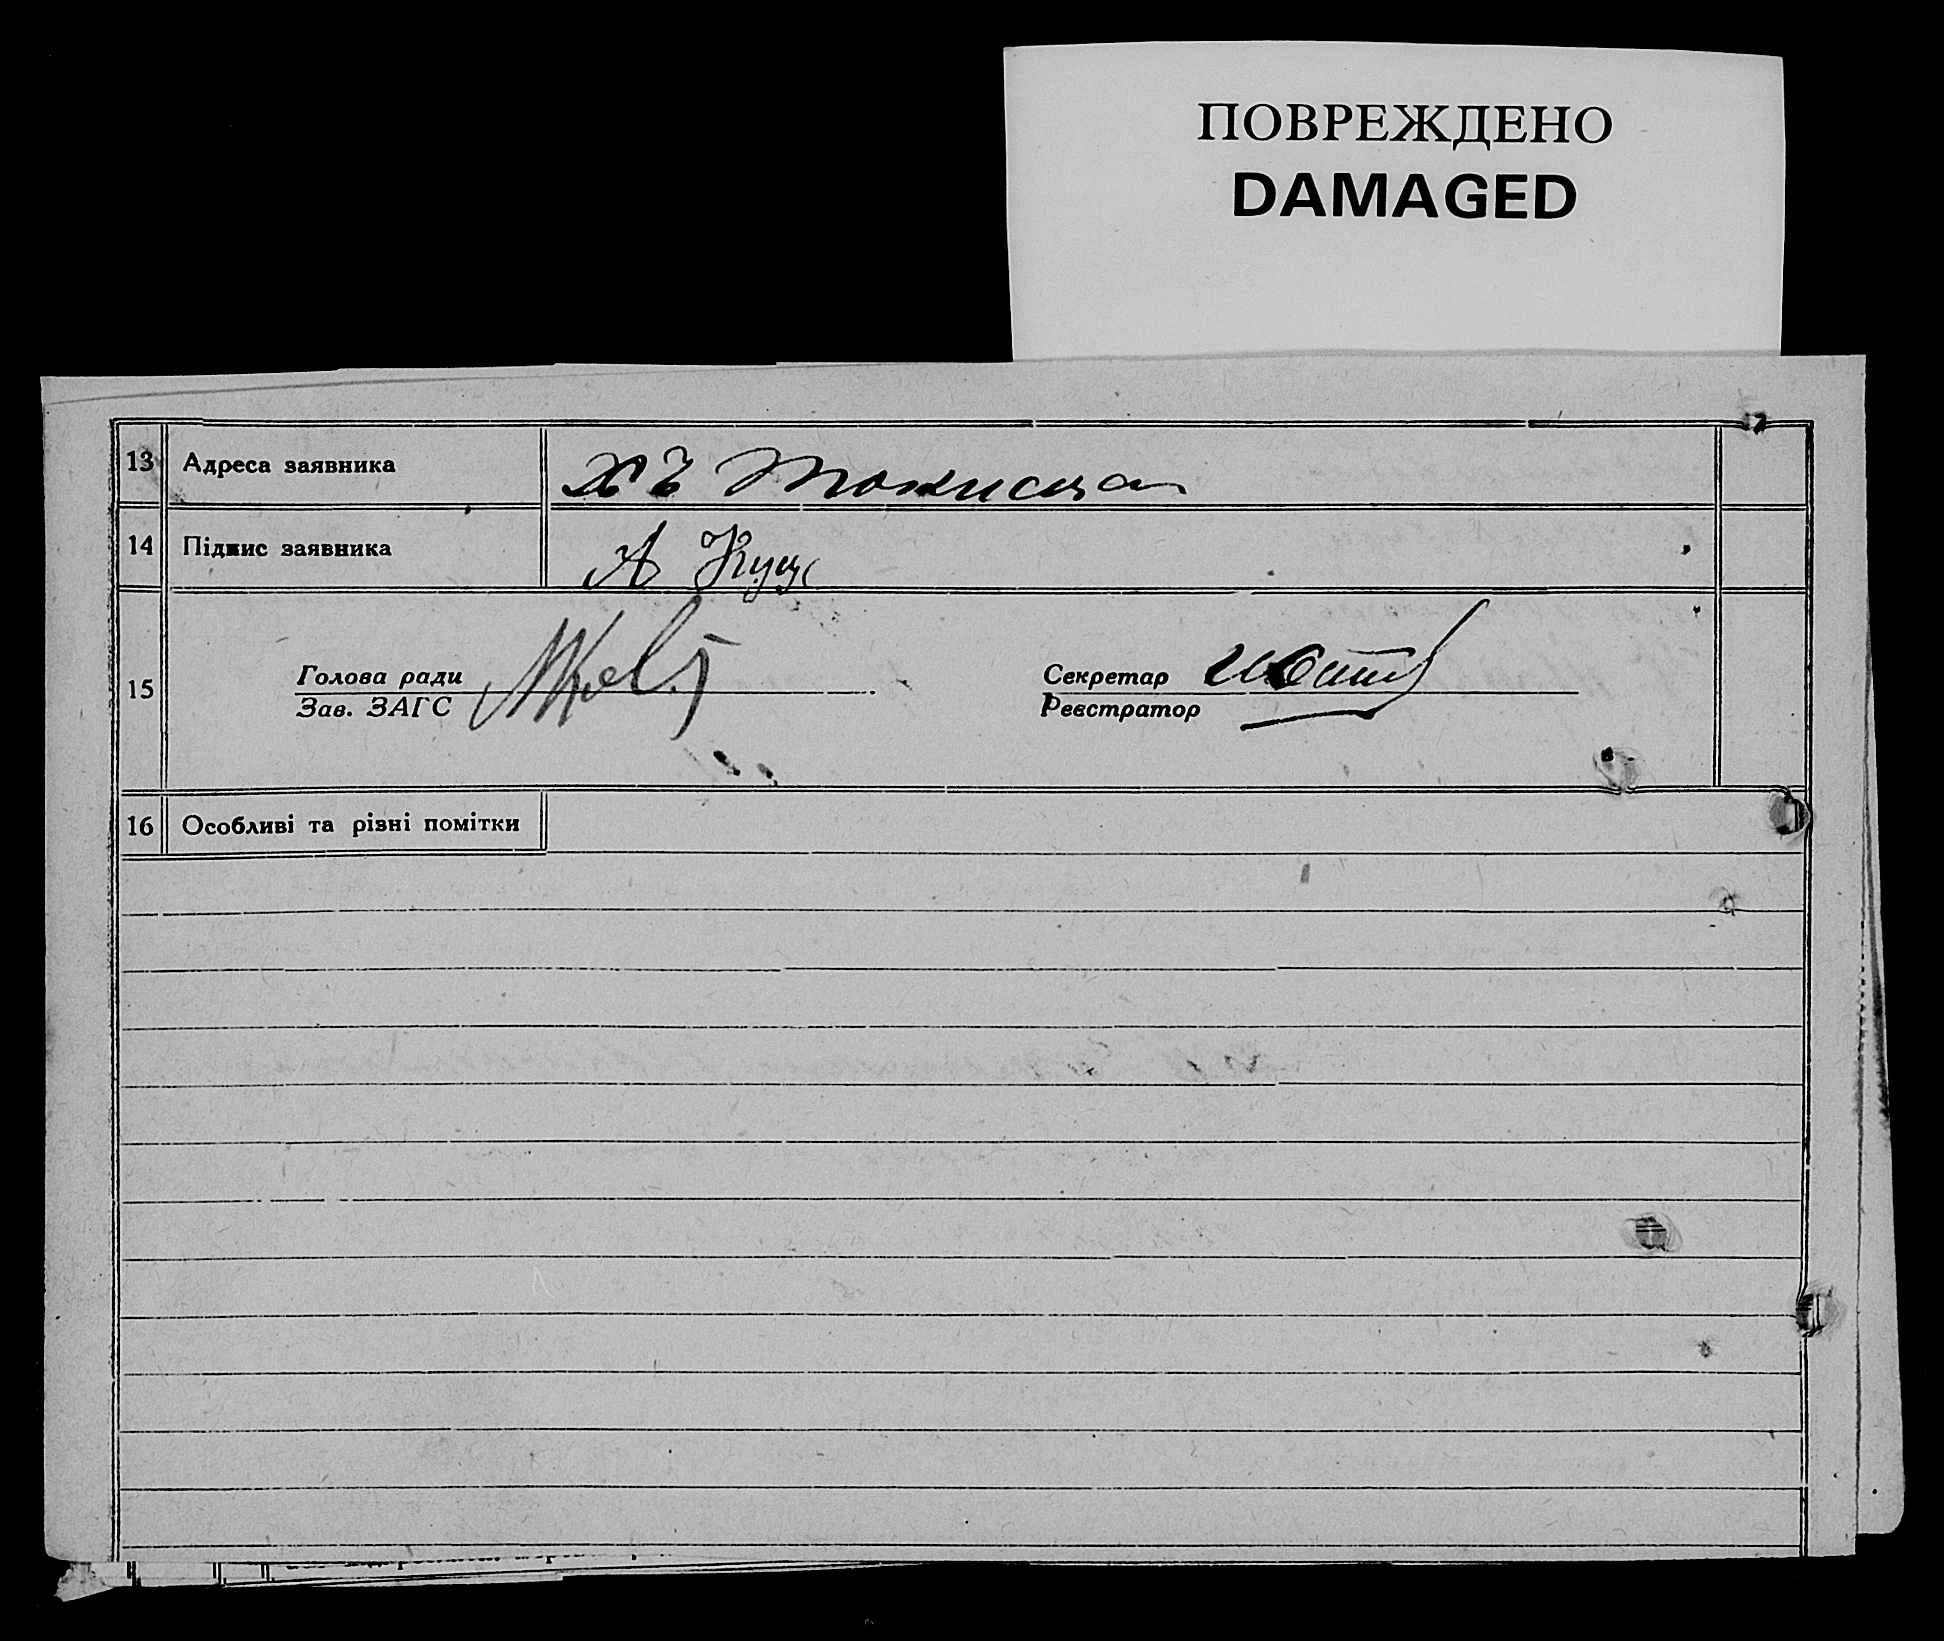 ПОВРЕЖДЕНО
DAMAGED
13 Адреса заявника
14 Підпис заявника А Куц
15 Голова ради
Зав. ЗАГС
Секретар
Реєстратор
16 Особливі та різні помітки